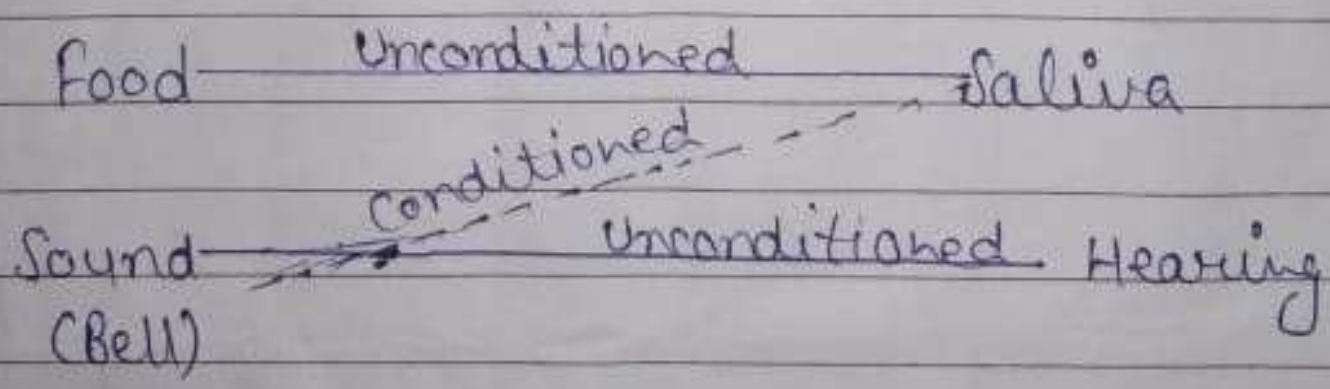 Food Unconditioned Saliva
Conditioned
Sound Unconditioned Hearing
(Bell)